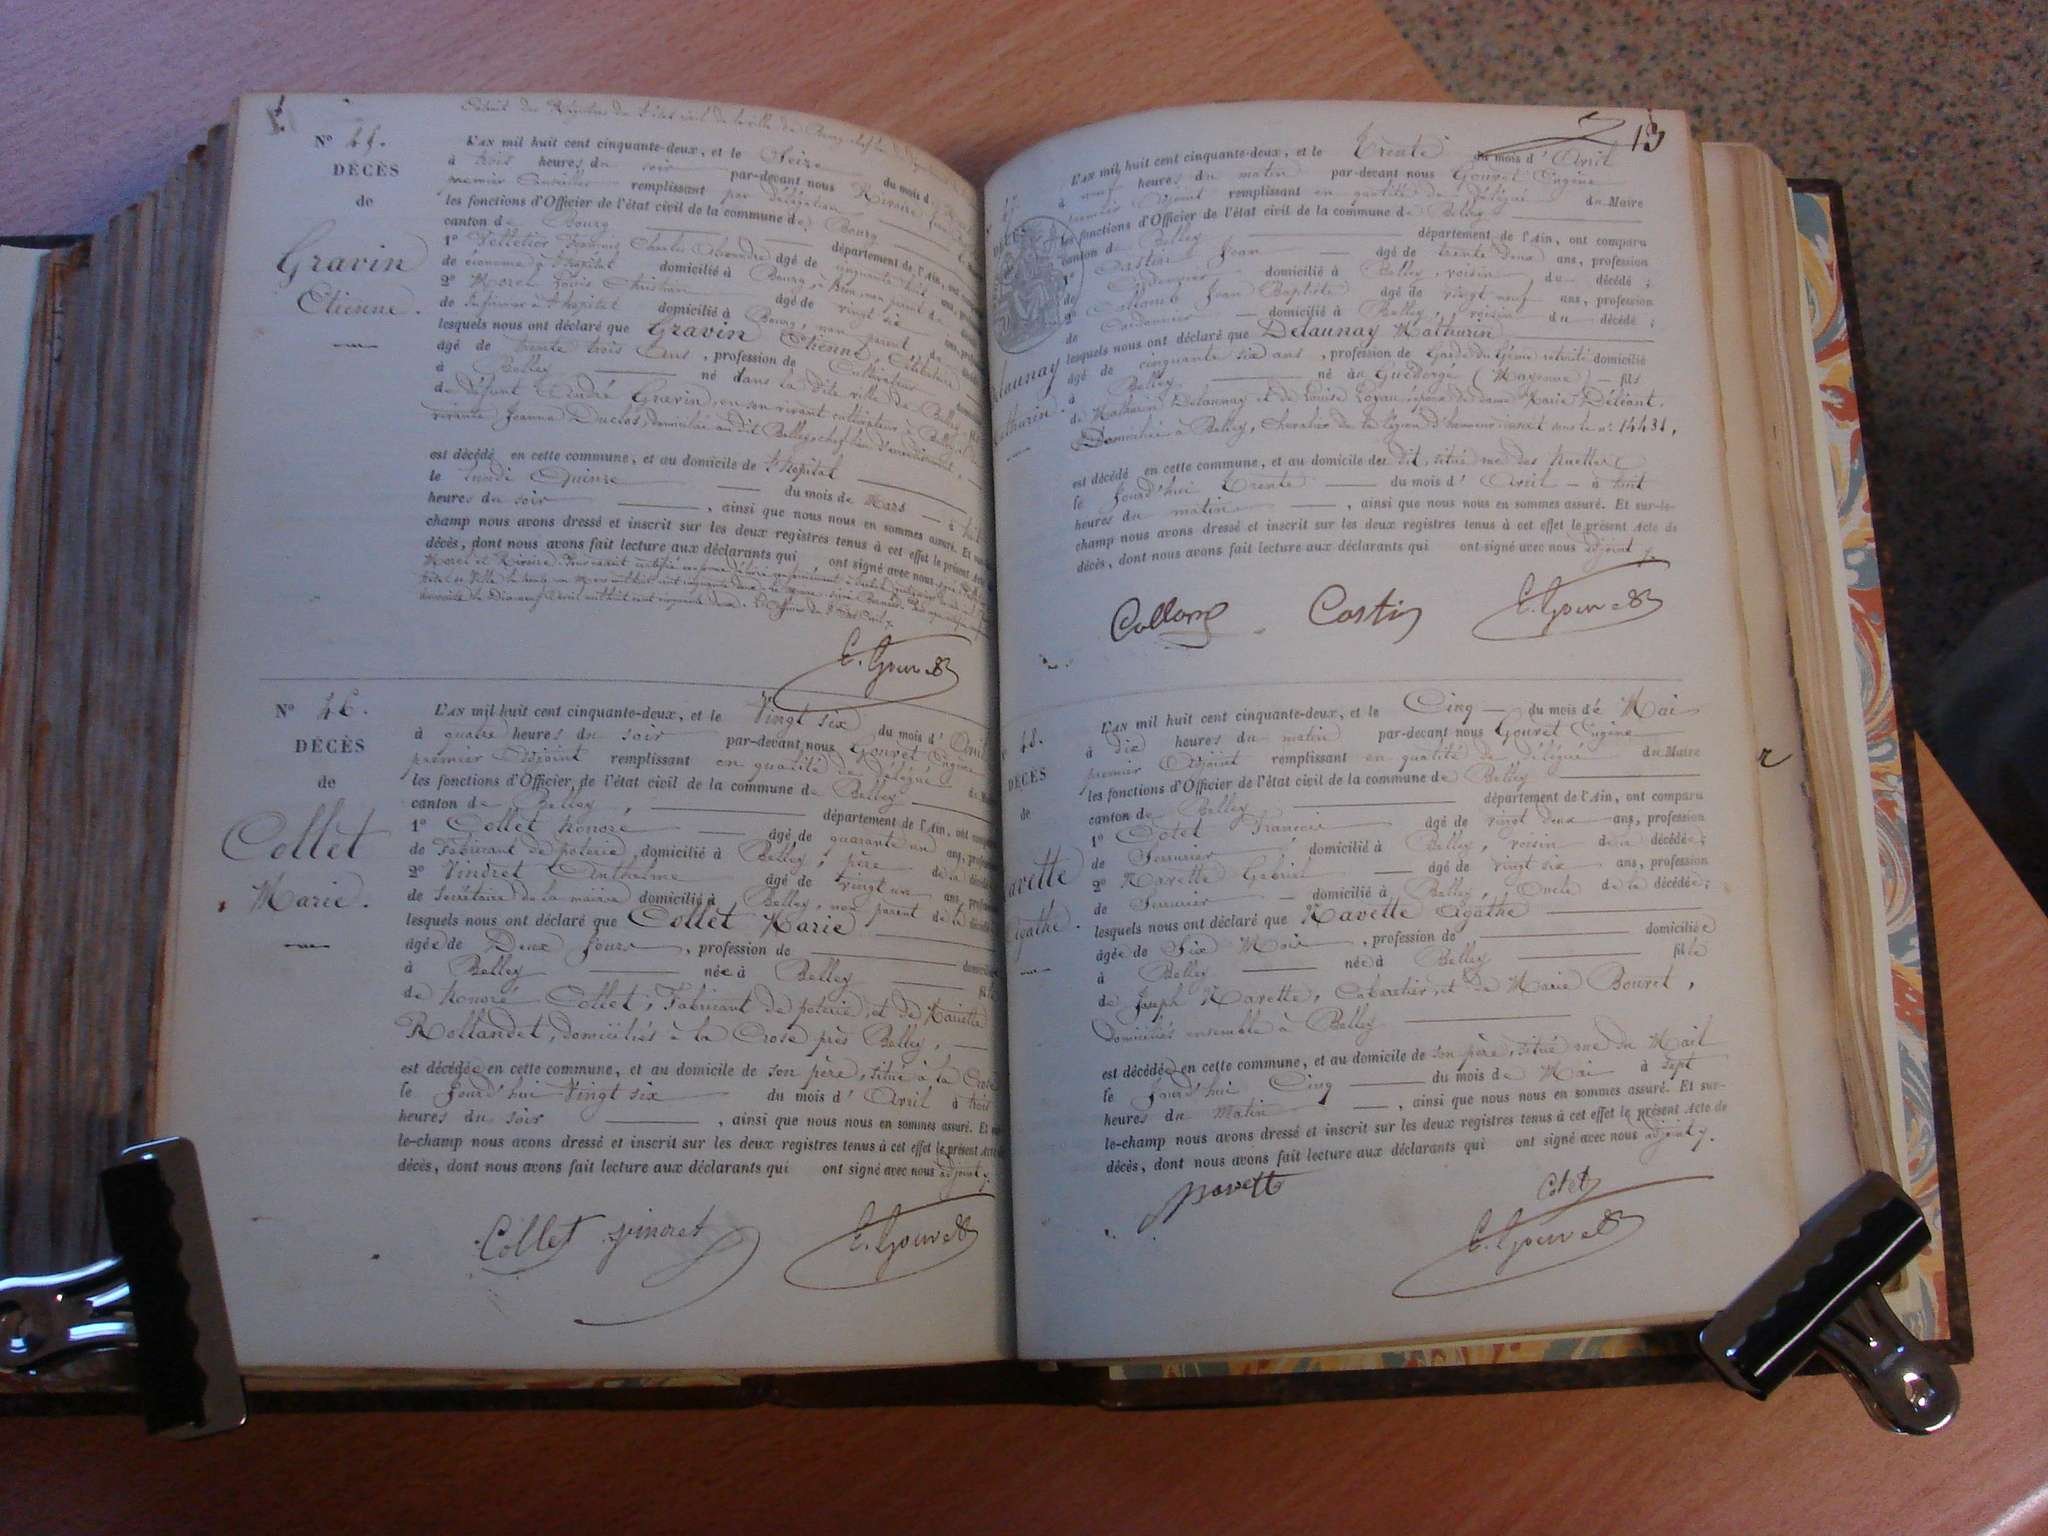 Nº 45.
DÉCÈS
de
Gravin
Etienne.
L'AN mil huit cent cinquante-deux, et le Seize du mois de
à trois heures du soir par-devant nous Rivoire
premier Conseiller remplissant par délégation
les fonctions d'Officier de l'état civil de la commune de Bourg
canton de Bourg département de l'Ain, ont
1º Pelletier François Charles Alexandre âgé de cinquante huit ans,
de économe à l'hôpital domicilié à Bourg, non parent du
2º Morel Louis Christian âgé de vingt six ans,
de infirmier à l'hôpital domicilié à Bourg, non parent du
lesquels nous ont déclaré que Gravin Etienne, Célibataire
âgé de trente trois Ans, profession de Cultivateur
à Belley né dans la dite ville de Belley
de défunt André Gravin, en son vivant cultivateur à Belley, et de
vivante Jeanne Duclos, domiciliée au dit Belley, chef lieu d'arrondissement,
est décédé en cette commune, et au domicile de l'hôpital
le lundi Quinze du mois de Mars à
heures du soir, ainsi que nous nous en sommes assuré. Et
champ nous avons dressé et inscrit sur les deux registres tenus à cet effet le présent Acte
décès, dont nous avons fait lecture aux déclarants qui ont signé avec nous
Morel et Rivoire.
E. Gouvet
Nº 46.
DÉCÈS
de
Collet
Marie.
L'AN mil huit cent cinquante-deux, et le Vingt six du mois d'Avril
à quatre heures du soir par-devant nous Gouvet Eugène
premier Adjoint remplissant en qualité de délégué du Maire
les fonctions d'Officier de l'état civil de la commune de Belley
canton de Belley, département de l'Ain, ont comparu
1º Collet honoré âgé de quarante un ans, profession
de Fabricant de poterie, domicilié à Belley, père de la décédée
2º Vindret Anthelme âgé de vingt un ans, profession
de Secrétaire de la mairie domicilié à Belley, non parent de la décédée
lesquels nous ont déclaré que Collet Marie
âgée de Deux jours, profession de domiciliée
à Belley née à Belley fille
de honoré Collet, Fabricant de poterie, et de Mariette
Rollandet, domiciliés à la Crose près Belley,
est décédée en cette commune, et au domicile de son père, situé à la Crose
le Jourd'hui Vingt six du mois d'Avril à trois
heures du soir, ainsi que nous nous en sommes assuré. Et sur-
le-champ nous avons dressé et inscrit sur les deux registres tenus à cet effet le présent Acte de
décès, dont nous avons fait lecture aux déclarants qui ont signé avec nous adjoint.
Collet Vindret E. Gouvet
13
47
DÉCÈS
Delaunay
Mathurin.
L'AN mil huit cent cinquante-deux, et le Trente du mois d'Avril
à neuf heures du matin par-devant nous Gouvet Eugène
premier Adjoint remplissant en qualité de délégué du Maire
les fonctions d'Officier de l'état civil de la commune de Belley
canton de Belley département de l'Ain, ont comparu
1º Castin Jean âgé de trente deux ans, profession
de Cordonnier domicilié à Belley, voisin du décédé;
2º Collomb Jean Baptiste âgé de vingt neuf ans, profession
de Cordonnier domicilié à Belley, voisin du décédé;
lesquels nous ont déclaré que Delaunay Mathurin
âgé de cinquante six ans, profession de Garde du Génie retraité domicilié
à Belley né à (Mayenne) fils
de Mathurin Delaunay et de Louise époux de dame Marie Déléant.
Domiciliée à Belley, Chevalier de la légion d'honneur inscrit sous le nº 14431,
est décédé en cette commune, et au domicile du dit, situé rue des
le Jourd'hui Trente du mois d'Avril à huit
heures du matin, ainsi que nous nous en sommes assuré. Et sur-le-
champ nous avons dressé et inscrit sur les deux registres tenus à cet effet le présent Acte de
décès, dont nous avons fait lecture aux déclarants qui ont signé avec nous adjoint.
Collomb Castin E. Gouvet
48.
DÉCÈS
de
Navette
Agathe.
L'AN mil huit cent cinquante-deux, et le Cinq du mois de Mai
à dix heures du matin par-devant nous Gouvet Eugène
premier Adjoint remplissant en qualité de délégué du Maire
les fonctions d'Officier de l'état civil de la commune de Belley
canton de Belley département de l'Ain, ont comparu
1º Cotet Francois âgé de vingt deux ans, profession
de Serrurier, domicilié à Belley, voisin de la décédée;
2º Navette Gabriel âgé de vingt six ans, profession
de Serrurier domicilié à Belley, Oncle de la décédée;
lesquels nous ont déclaré que Navette Agathe
âgée de Six Mois, profession de domiciliée
à Belley née à Belley fille
de Joseph Navette, Cabaretier, et de Marie Bouvet,
Domiciliés ensemble à Belley
est décédée en cette commune, et au domicile de son père, situé rue du Mail
le Jourd'hui Cinq du mois de Mai à sept
heures du Matin, ainsi que nous nous en sommes assuré. Et sur-
le-champ nous avons dressé et inscrit sur les deux registres tenus à cet effet le présent Acte de
décès, dont nous avons fait lecture aux déclarants qui ont signé avec nous adjoint.
Navett Cotet
E. Gouvet